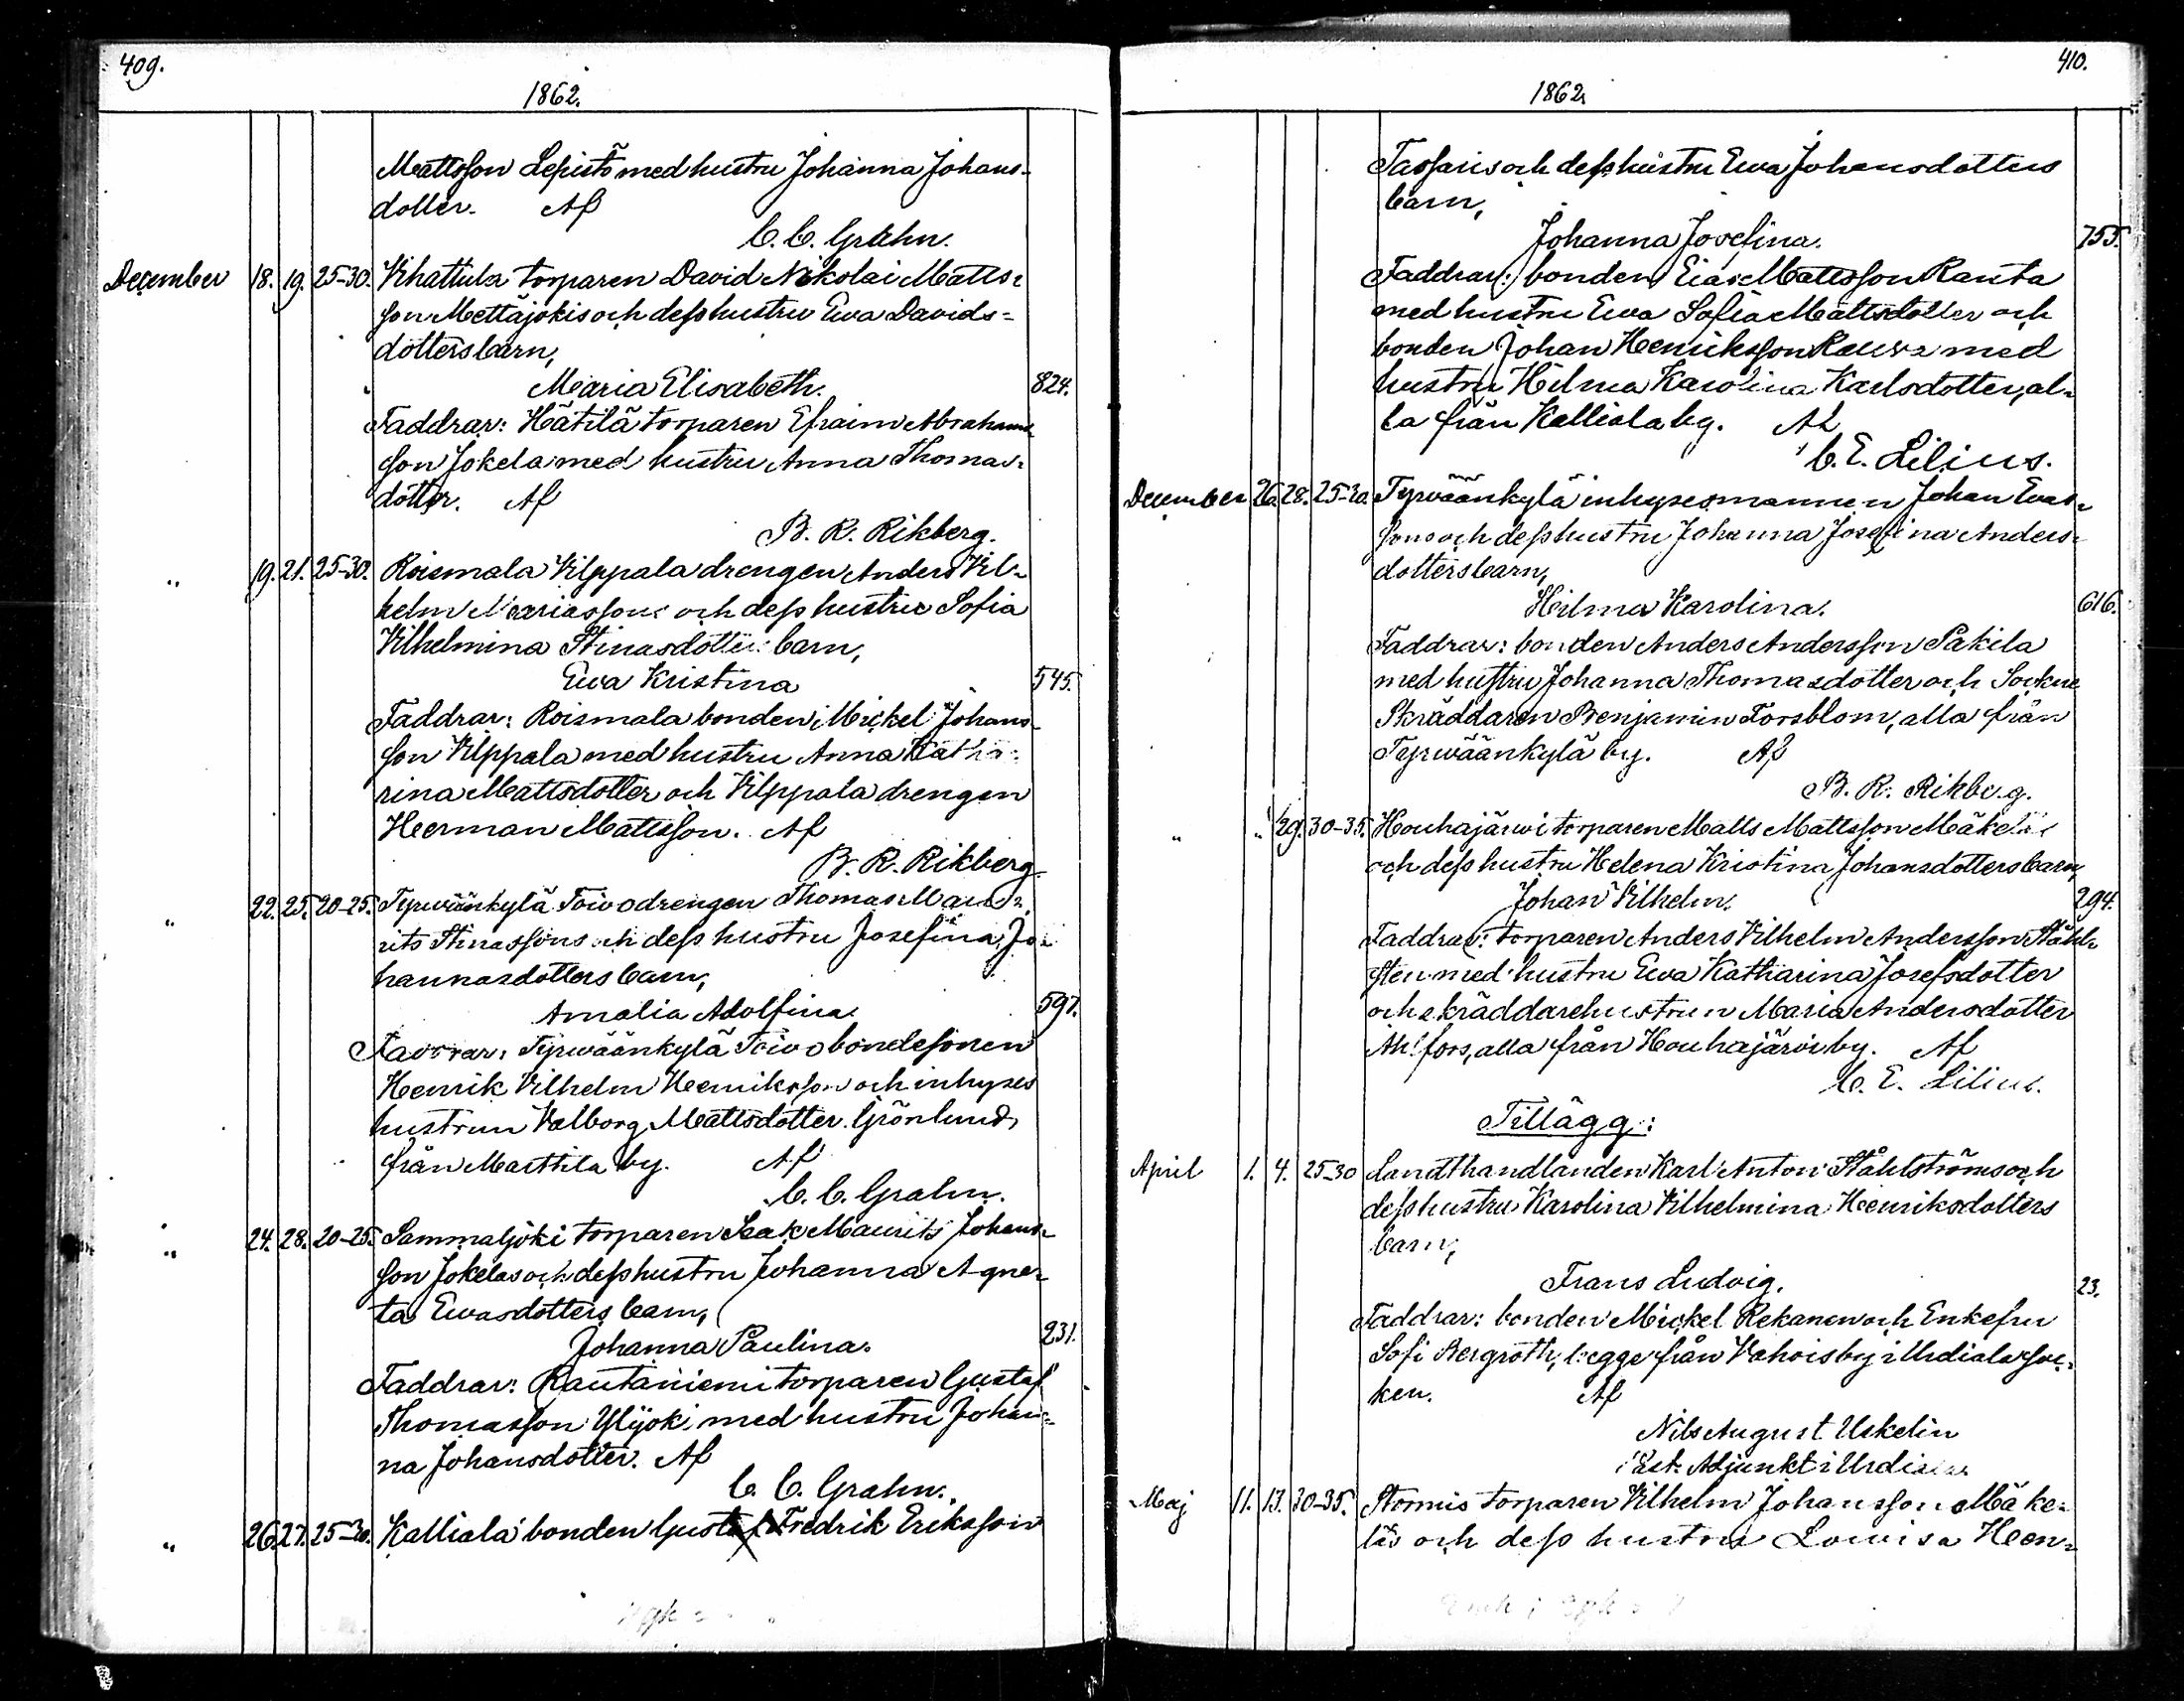 409.
1862.
Mattsson Lepistö med hustru Johanna Johans-
dotter. Af
C. C. Grahn.
December 18. 19. 25-30. Vihattula torparen David Nikolai Matts-
son Mettäjokis och dess hustru Ewa Davids-
dotters barn,
Maria Elisabeth. 824.
Faddrar: Hätilä torparen Efraim Abrahams-
son Jokela med hustru Anna Thomas-
dotter. Af
B. R. Rikberg.
" 19. 21. 25-30. Roismala Vilppala drengen Anders Vil-
helm Mariassons och dess hustru Sofia
Vilhelmina Stinasdotters barn,
Ewa Kristina 545.
Faddrar: Roismala bonden Mickel Johans-
son Vilppala med hustru Anna Katha-
rina Mattsdotter och Vilppala drengen
Herman Mattsson. Af
B. R. Rikberg
" 22. 25. 20-25. Tyrwäänkylä Toivo drengen Thomas Mau-
rits Stinassons och dess hustru Josefina Jo-
hannasdotters barn,
Amalia Adolfina. 597.
Faddrar: Tyrwäänkylä Toivo bondesonen
Henrik Vilhelm Henriksson och inhyses
hustrun Valborg Mattsdotter Grönlund,
från Marttila by. Af
C. C. Grahn.
" 24. 28. 20-25. Sammaljoki torparen Isak Maurits Johans-
son Jokelas och dess hustru Johanna Agne-
ta Ewasdotters barn,
Johanna Paulina. 231.
Faddrar: Rautaniemi torparen Gustaf
Thomasson Ylijoki med hustru Johan-
na Johansdotter. Af
C. C. Grahn.
" 26. 27. 25-30. Kalliala bonden Gustaf Fredrik Eriksson
410.
1862.
Tassaris och dess hustru Ewa Johansdotters
barn,
Johanna Josefina. 755.
Faddrar: bonden Elias Mattsson Ranta
med hustru Ewa Sofia Mattsdotter och
bonden Johan Henriksson med
hustru Hilma Karolina Karlsdotter, al-
la från Kalliala by. Af
C. E. Lilius.
December 26. 28. 25-30. Tyrwäänkylä inhysesmannen Johan Evas-
sons och dess hustru Johanna Josefina Anders-
dotters barn,
Hilma Karolina. 616.
Faddrar: bonden Anders Andersson Pakila
med hustru Johanna Thomasdotter och Sockne
Skräddaren Benjamin Forsblom, alla från
Tyrwäänkylä by. Af
B. R. Rikberg.
" " 29. 30-35. Houhajärwi torparen Matts Mattsson Mäkeläs
och dess hustru Helena Kristina Johansdotters barn,
Johan Vilhelm. 294.
Faddrar: torparen Anders Vilhelm Andersson Ståhl-
sten med hustru Ewa Katharina Josefsdotter
och skräddarehustrun Maria Andersdotter
Ahlfors, alla från Houhajärvi by. Af
C. E. Lilius.
Tillägg:
April 1. 4. 25-30 Landthandlanden Karl Anton Ståhlströms och
dess hustru Karolina Vilhelmina Henriksdotters
barn,
Frans Ludvig. 23.
Faddrar: bonden Mickel Rekanen och Enkefru
Sofi Bergroth, begge från Vahois by i Urdiala soc-
ken. Af
Nils August Uskelin
Adjunkt i Urdiala
Maj 11. 13. 30-35. Stormis torparen Vilhelm Johansson Mäke-
läs och dess hustru Lowisa Hen-